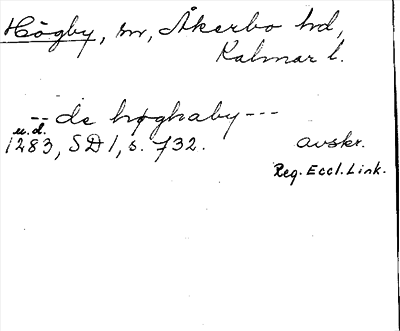 Högby, sn, Åkerbo hd,
Kalmar l.
-- de høghaby ---
u.d.
1283, SD 1, s. 732. avskr.
Reg. Eccl. Link.